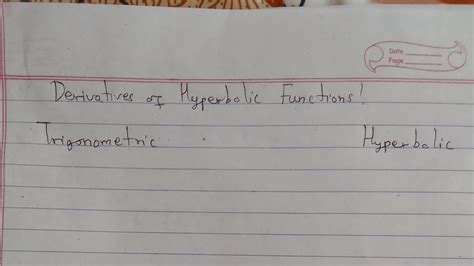 Date
Page
Derivatives of Hyperbolic Functions!
Trigonometric Hyperbolic